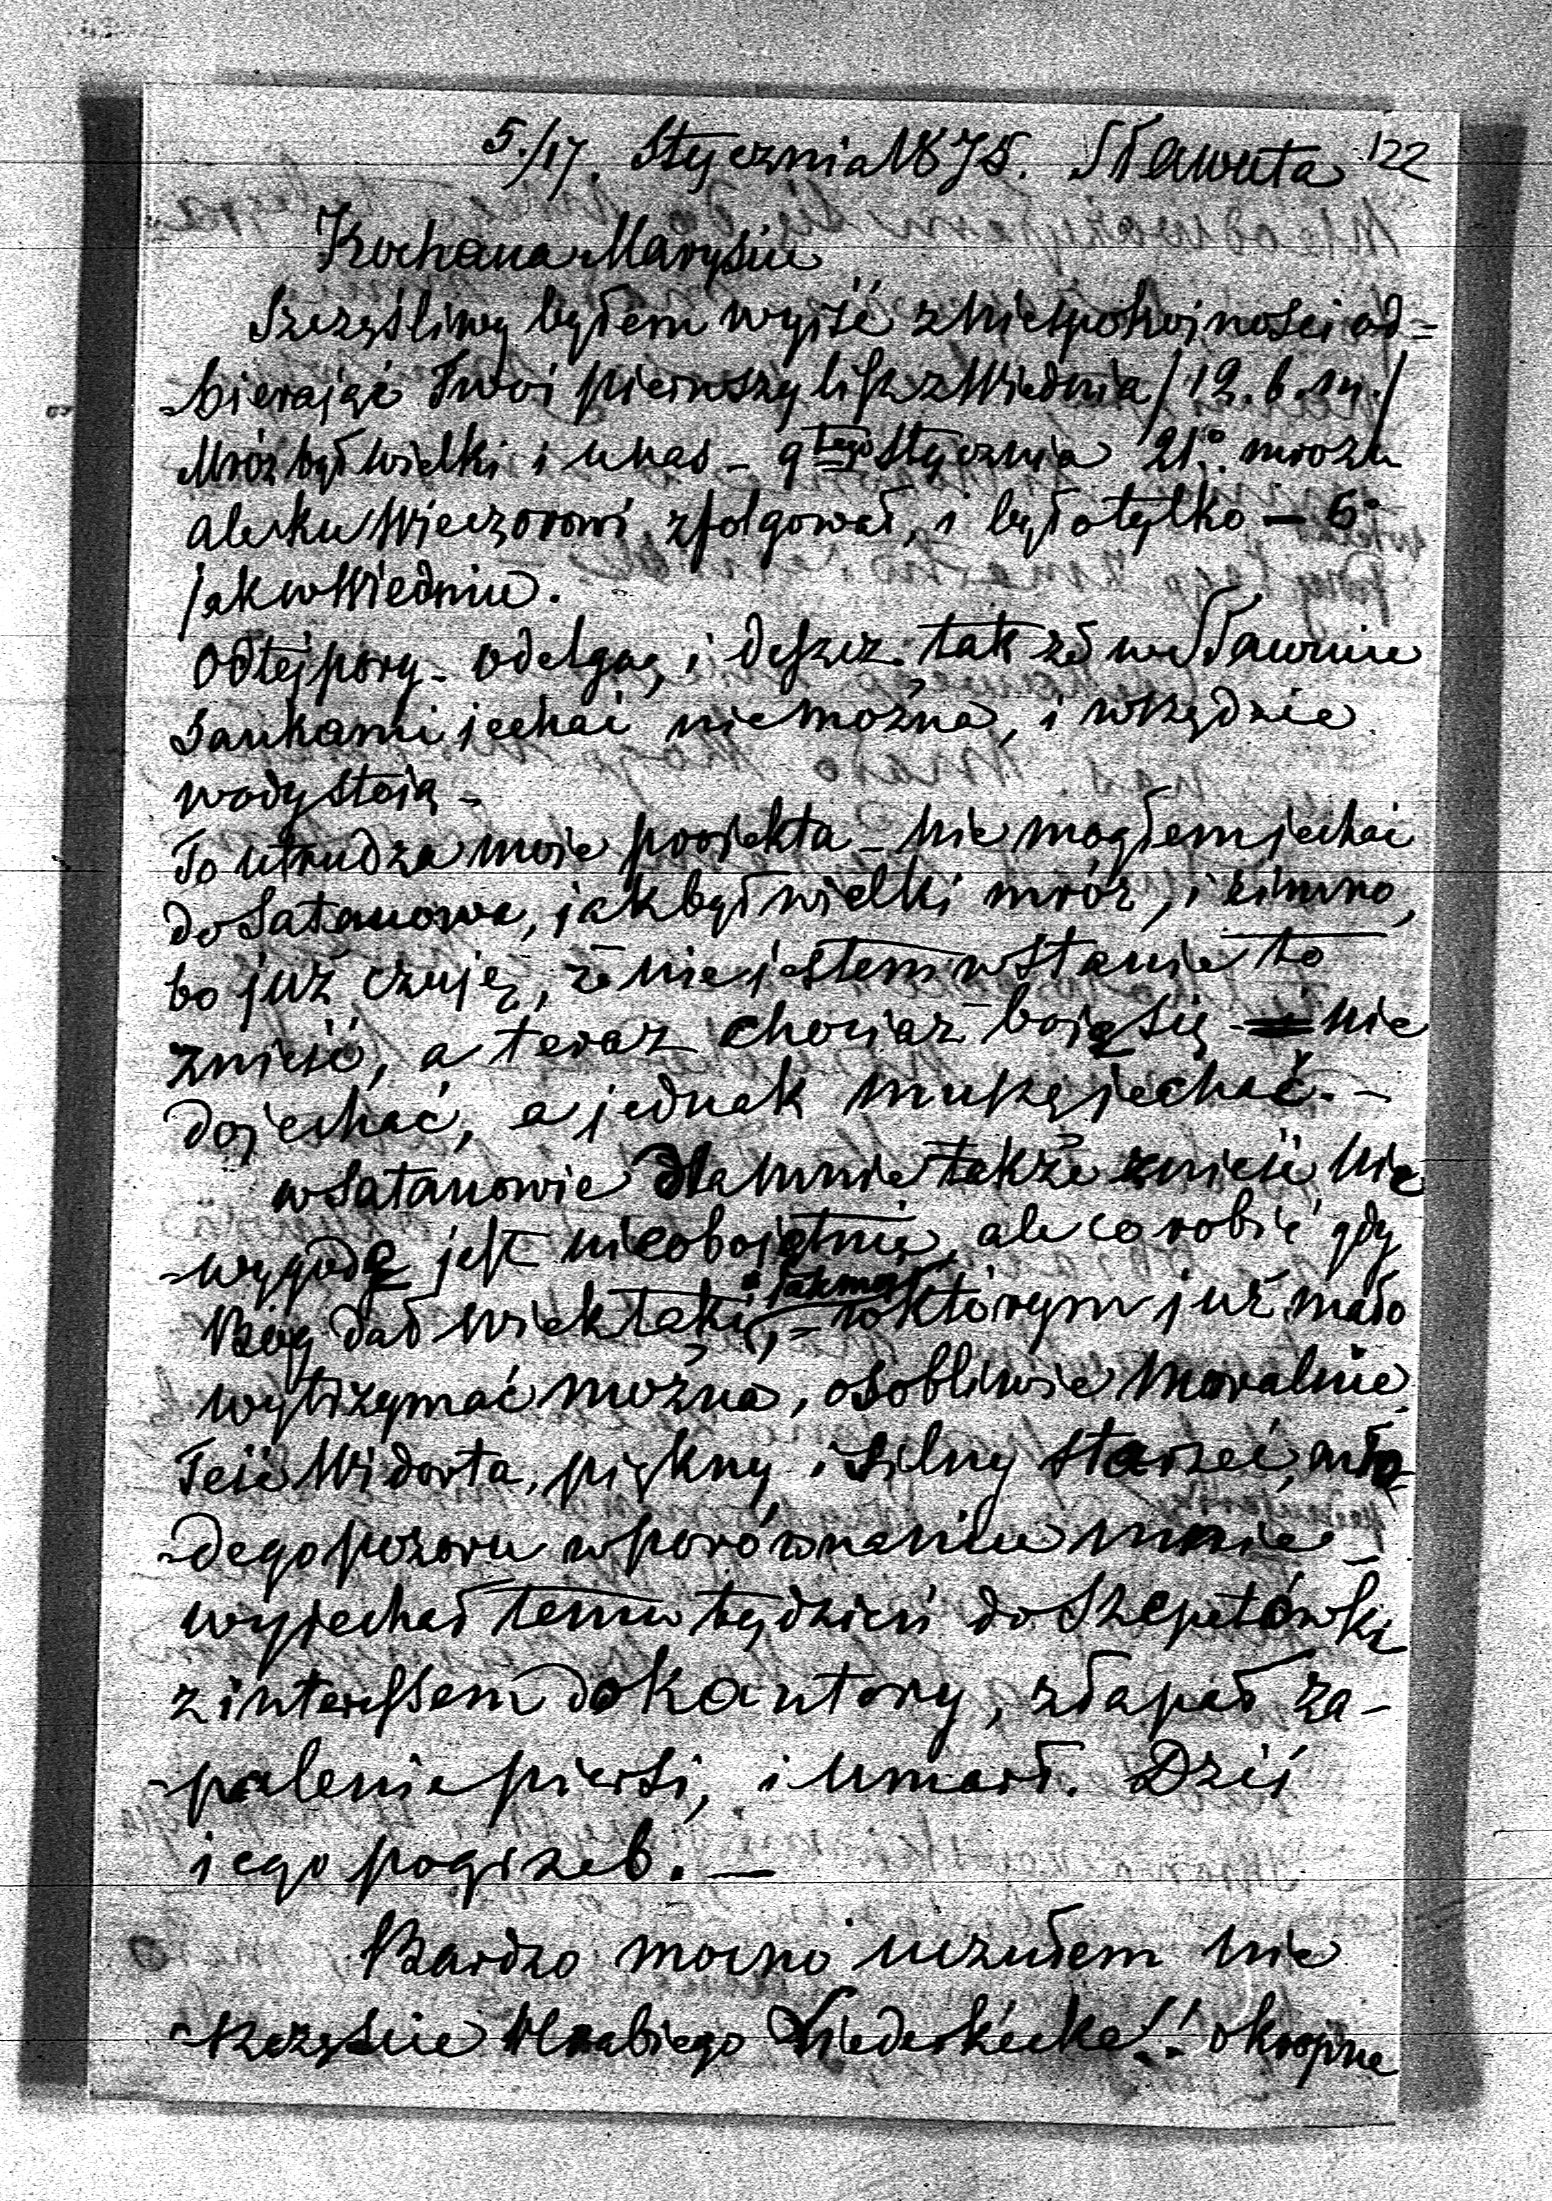 5./17. Stycznia 1875. Sławuta 122
Kochana Marysiu
Szczęśliwy byłem wyiść z niespokojności od=
-bierając Twoi pierwszy list z Wiednia /12. b. m./
Mróz był wielki i u nas - 9tego Stycznia 21.° mrozu
ale ku Wieczorowi zfolgował, i było tylko - 6°
jak w Wiedniu.
Od tej pory - odelga, i deszcz: tak że w Sławucie
Sankami jechać nie można, i wszędzie
wody stoią -
To utrudza moie projekta - nie mogłem jechać
do Satanowa, jak był wielki mróz, i zimno,
bo już czuję, że nie jestem w stanie to
znieść, a teraz chociaż boię się nie
dojechać, a jednak muszę jechać. -
w Satanowie dla mnie także znieść nie
-wygodę jest nieobojętnie, ale co robić gdy
Bóg dał wiek taki, - w którym już mało
wytrzymać można, osobliwie moralnie.
Teść Widorta, piękny i silny starzec, mło-
-dego pozoru w porównaniu mnie -
wyjechał temu tydzień do Szepetówki
z interessem do Kantory, złapał za-
-palenie piersi, i umarł. Dziś
iego pogrzeb. -
Bardzo mocno uczułem nie
-szczęście Hrabiego okropne